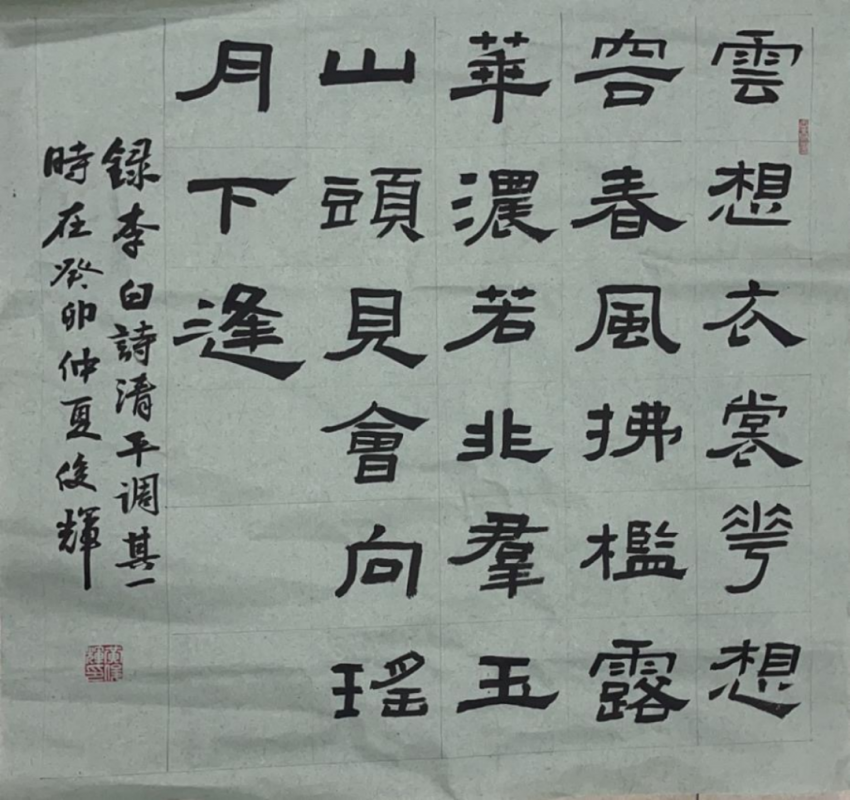 雲想衣裳花想
容春風拂檻露
華濃若非羣玉
山頭見會向瑤
月下逢
録李白詩清平调其一
時在癸卯仲夏俊輝